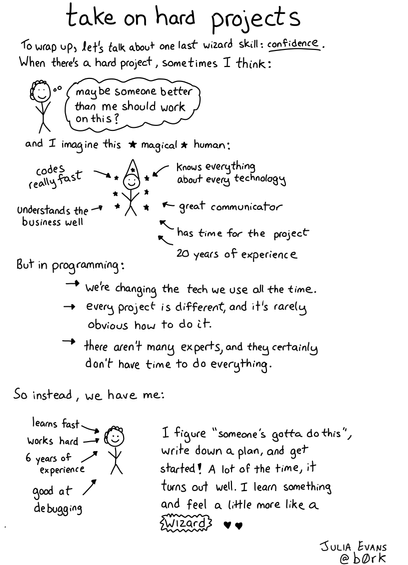 take on hard projects
To wrap up, let's talk about one last wizard skill: confidence.
When there's a hard project, sometimes I think:
maybe someone better
than me should work
on this?
and I imagine this ★ magical ★ human:
codes
really fast
knows everything
about every technology
understands the
business well
great communicator
has time for the project
20 years of experience
But in programming:
→ we're changing the tech we use all the time.
→ every project is different, and it's rarely
obvious how to do it.
→ there aren't many experts, and they certainly
don't have time to do everything.
So instead, we have me:
learns fast
works hard
6 years of
experience
good at
debugging
I figure "someone's gotta do this",
write down a plan, and get
started! A lot of the time, it
turns out well. I learn something
and feel a little more like a
Wizard ♥♥
JULIA EVANS
@bØrk